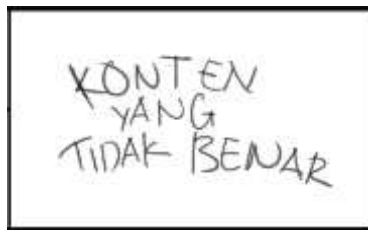 KONTEN
YANG
TIDAK BENAR